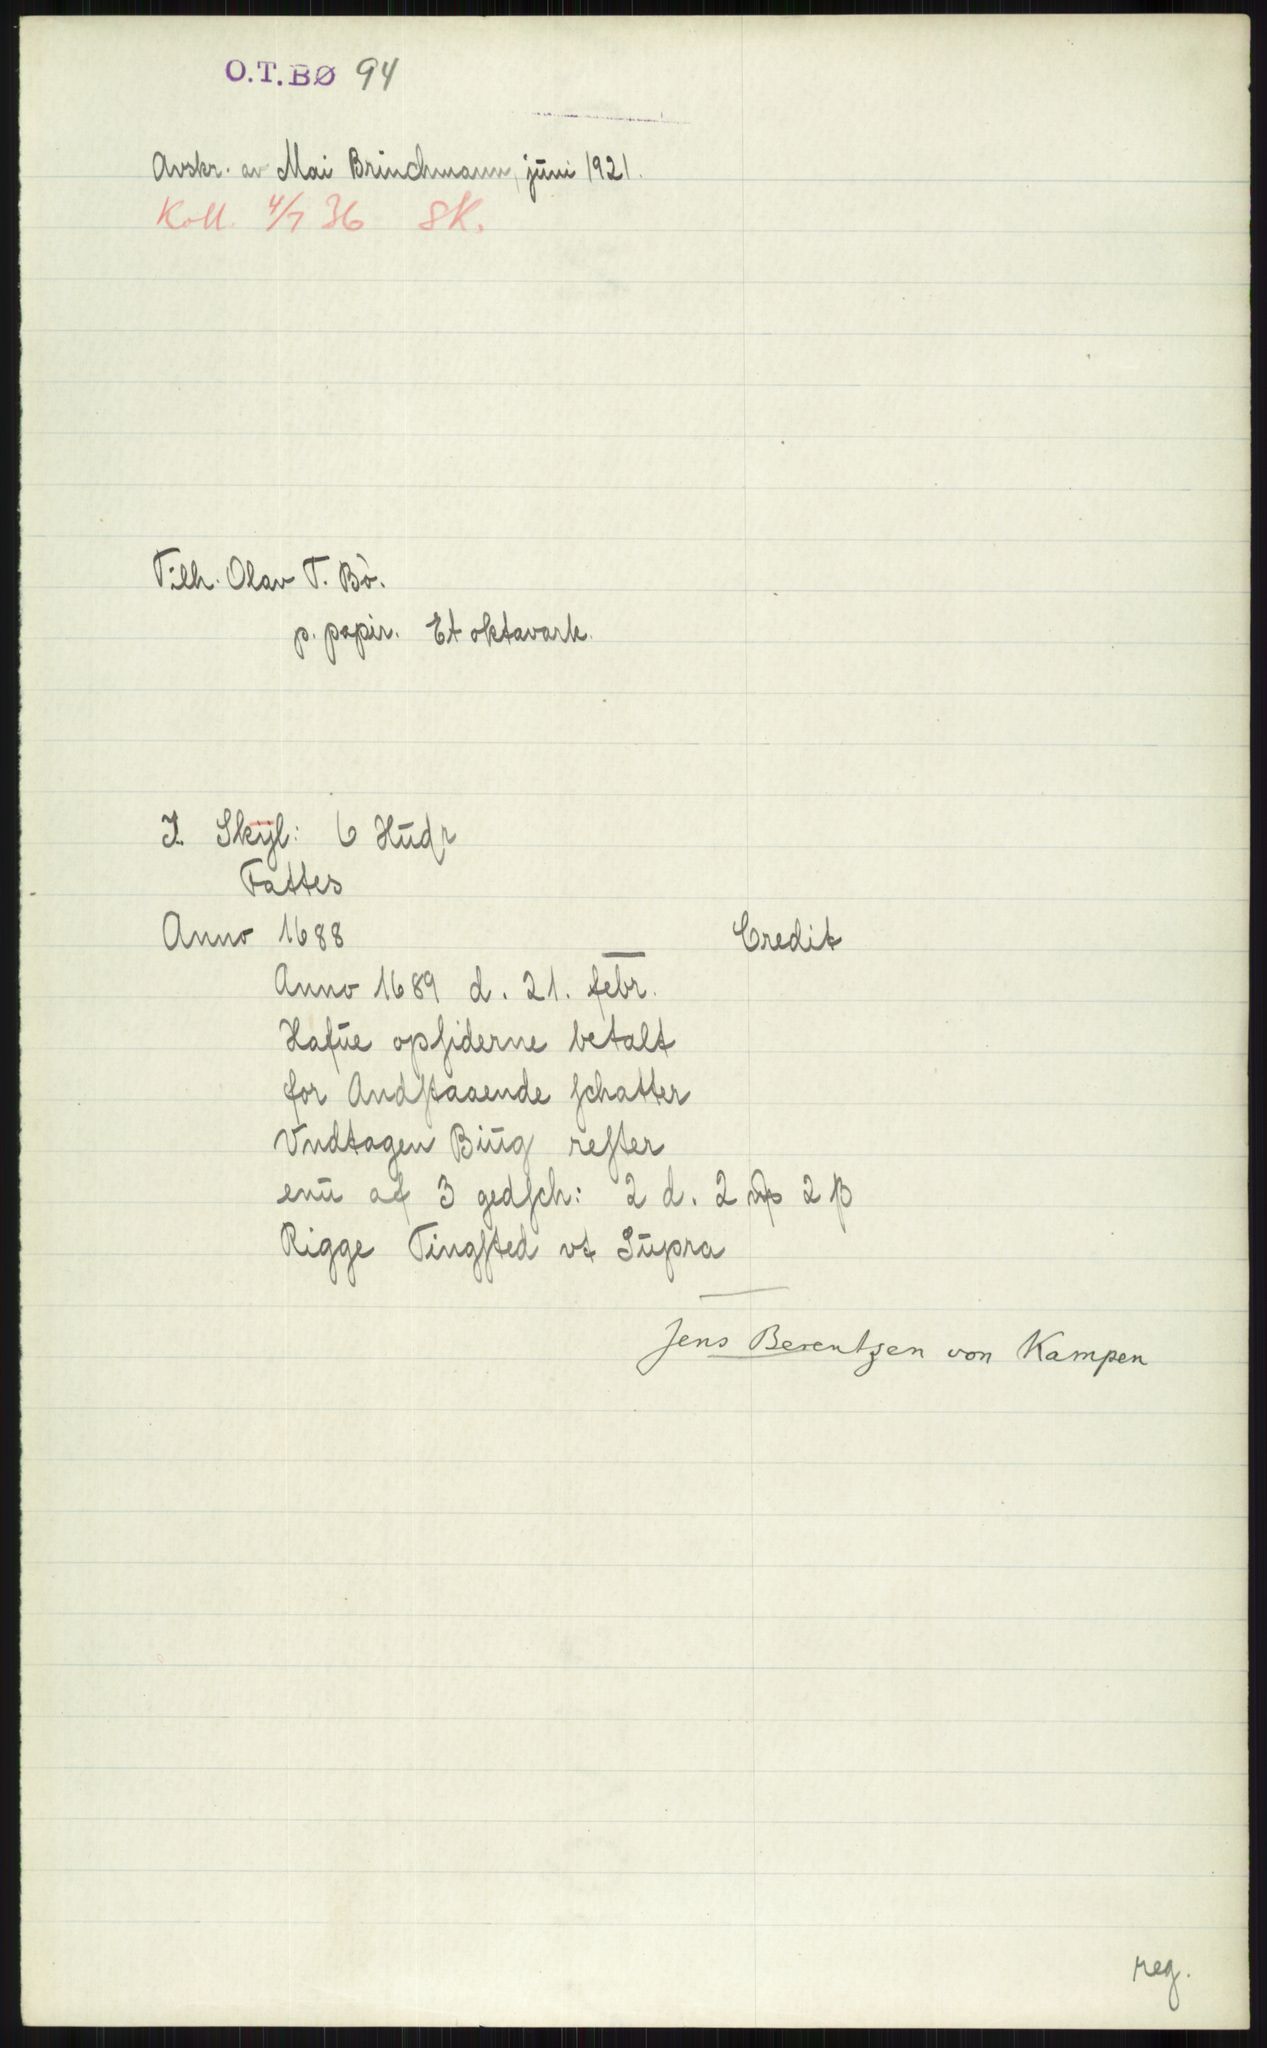 O.T.BØ 94
Avskr. av Mai Brinchmann, juni 1921.
Koll. 4/7 36 SK.
Tilh. Olav T. Bö.
p. papir. Et oktavark.
I. Skÿl: 6 Hudr
Fattes
Anno 1688 Credit
Anno 1689 d. 21. febr.
Hafue opſiderne betalt
for Andſtaaende ſchatter
Vndtagen Biug reſter
enu af 3 gedſch: 2 d. 2 2 β
Rigge Tingſted vt Supra
Jens Berentzen von Kampen
reg.